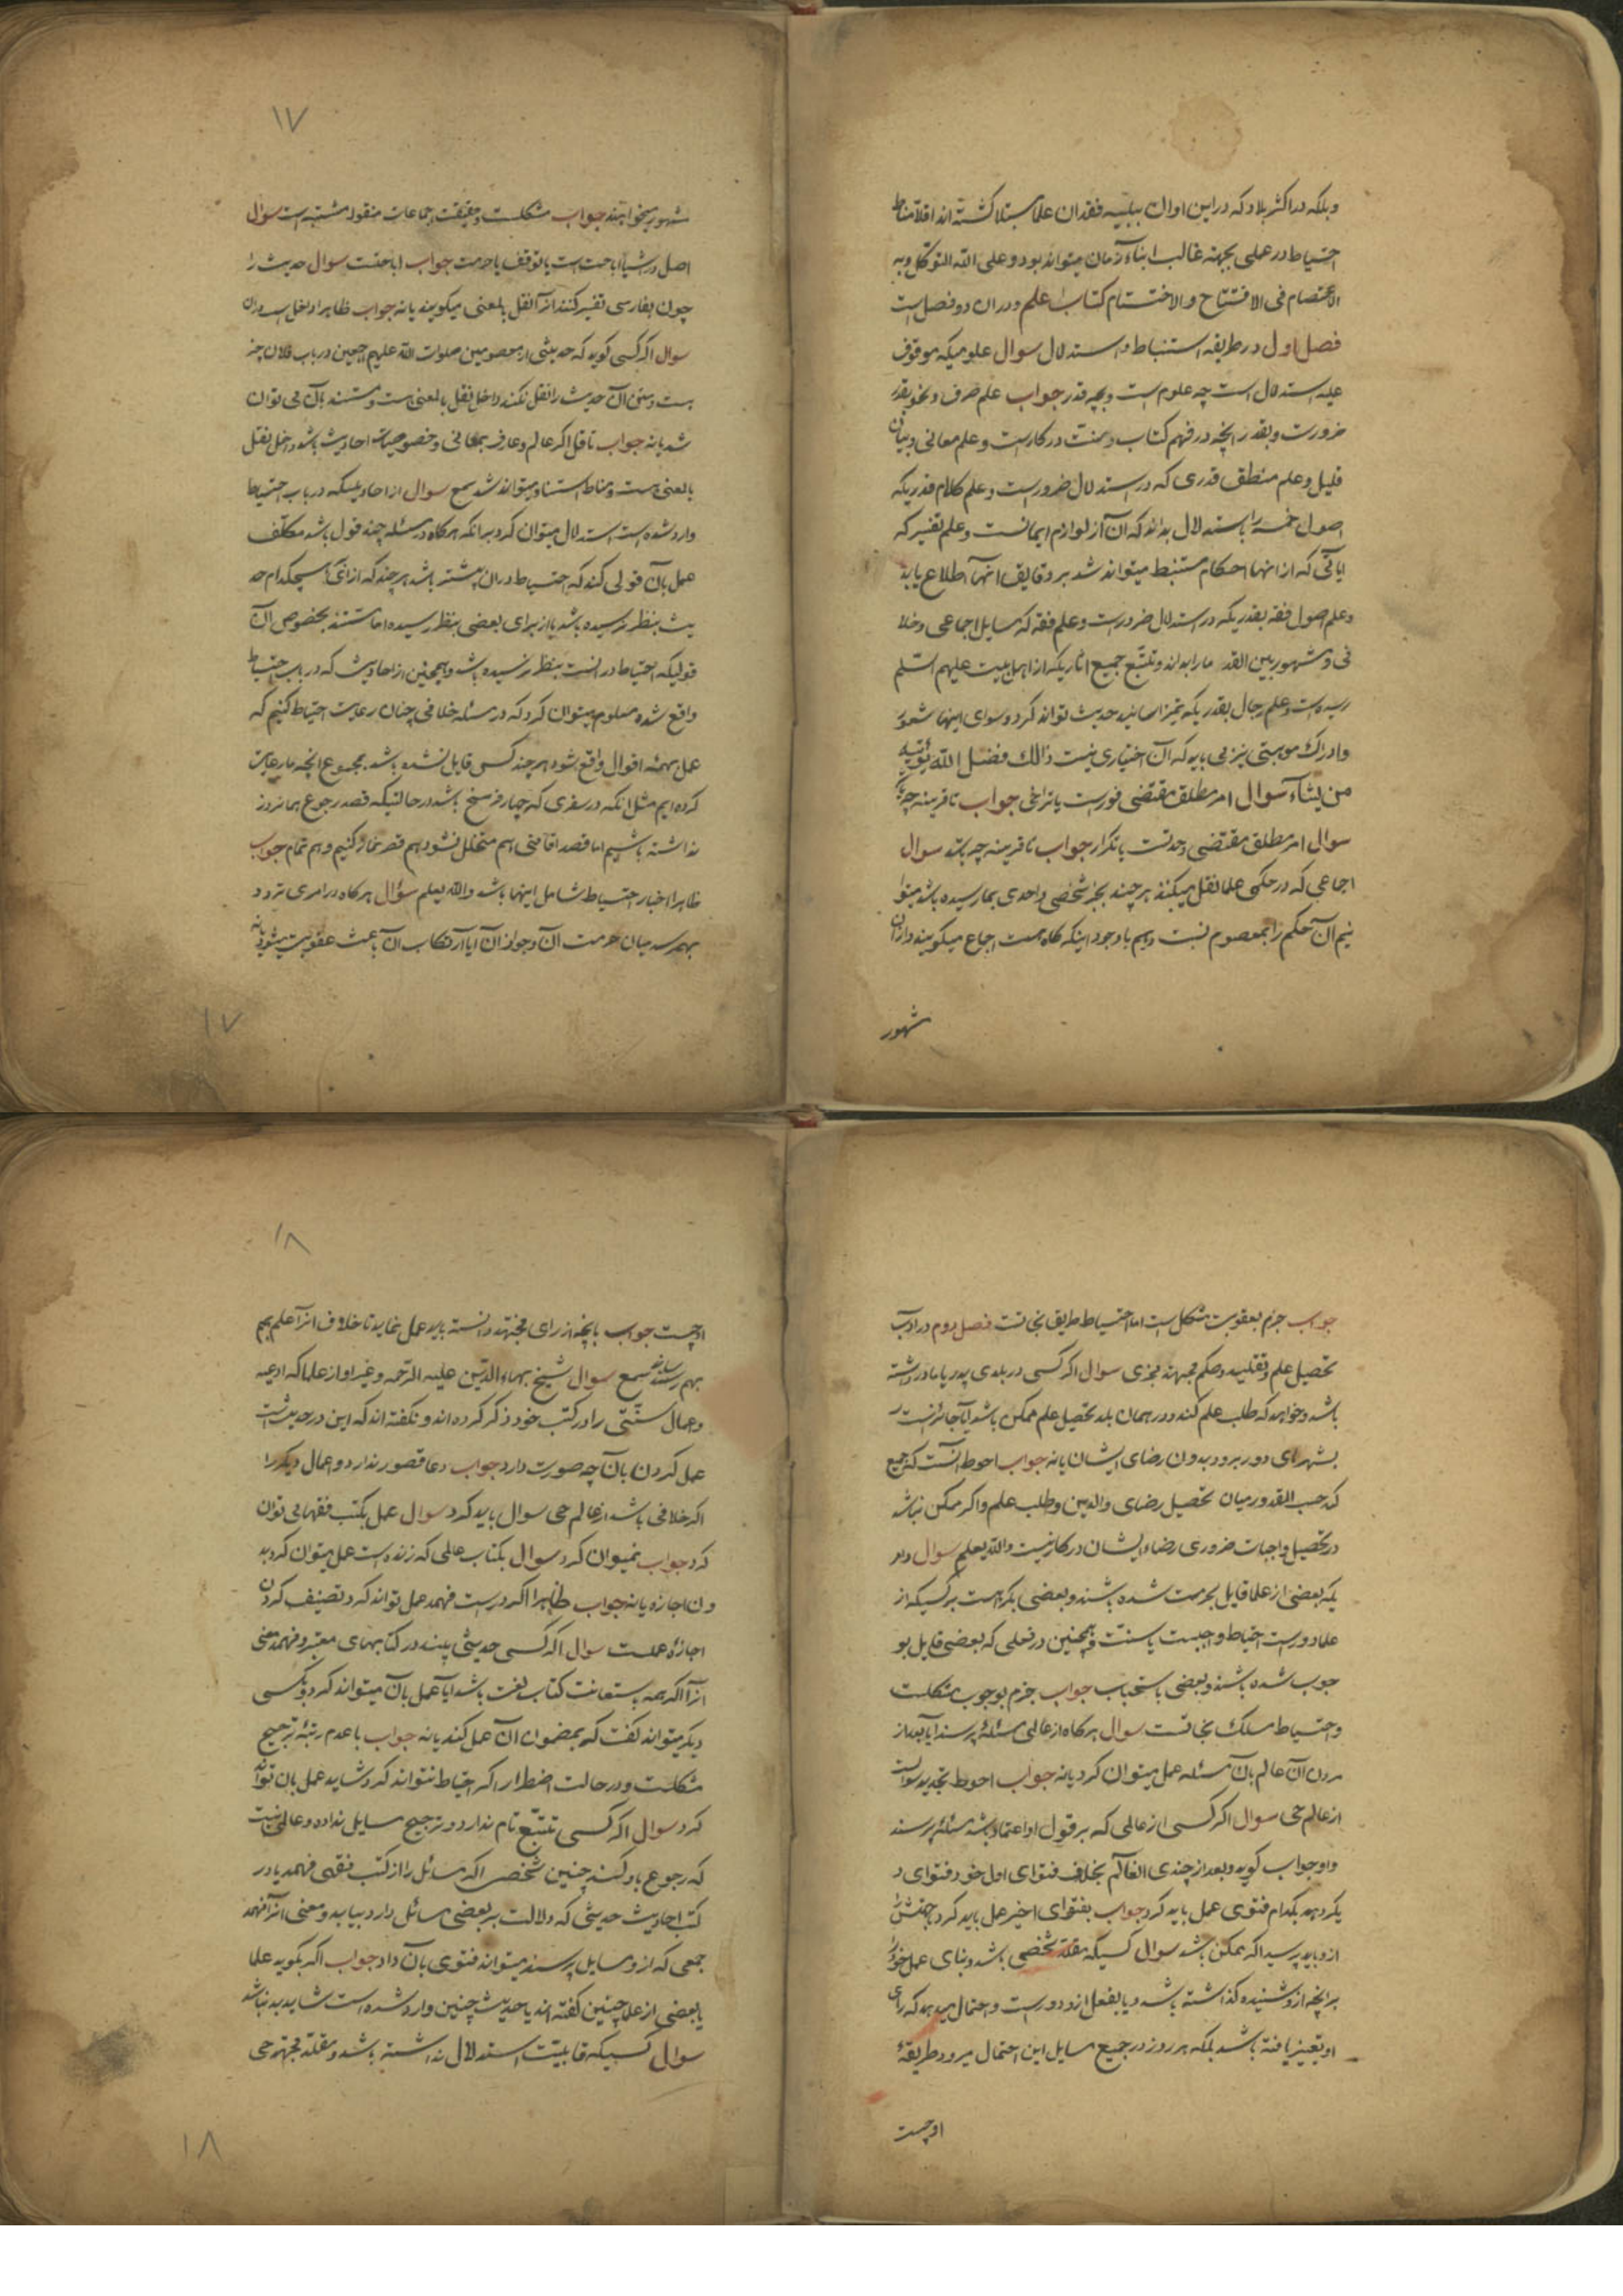 وبلکه در اکثر بلاد که دراین اوان ببلیه فقدان علما مبتلا کشته اند اقلا مناط
احتیاط در عملی بجهته غالب ابناء زمان میتواند بود و علی الله التوکل و به
الاعتصام فی الافتتاح والاختتام کتاب علم ودران دو فصل است
فصل اول در طریقه استنباط واستدلال سوال علومیکه موقوف
علیه استدلال است چه علوم است وبچه قدر جواب علم صرف ونحو بقدر
ضرورت وبقدر انچه در فهم کتاب وسنت در کارست وعلم معانی وبیان
قلیل وعلم منطق قدری که در استدلال ضرورست وعلم کلام قدریکه
اصول خمسه را باستدلال بداند که آن از لوازم ایمانست وعلم تفسیر که
ایاتی که از انها احکام مستنبط میتواند شد بر دقایق انها اطلاع یابد
وعلم اصول فقه بقدریکه در استدلال ضرورست وعلم فقه که مسایل اجماعی وخلا
فی ومشهور بین القدما را بداند وتتبع جمیع اثاریکه از اهل بیت علیهم السلم
رسیده است وعلم رجال بقدریکه تمیز اسانید حدیث تواند کرد وسوای اینها شعور
وادراک موهبتی نیز می باید که آن اختیاری نیست ذالک فضل الله یؤتیه
من یشاء سوال امر مطلق مقتضی فورست یا تراخی جواب تا قرینه چه باشد
سوال امر مطلق مقتضی وحدتست یا تکرار جواب تا قرینه چه باشد سوال
اجماعی که در حکمی علما نقل میکنند هر چند بخبر شخص واحدی بما رسیده باشد میتوا
نیم آن حکم را بمعصوم نسبت دهیم با وجود اینکه کاه هست اجماع میکویند وازان
شهور
۱۷
شهور میخواهند جواب مشکلست وحقیقت اجماعات منقوله مشتبه است سوال
اصل در اشیآ اباحت است یا توقف یا حرمت جواب اباحتست سوال حدیث را
چون بفارسی تفسیر کنند از آ نقل بالمعنی میکویند یا نه جواب ظاهرا داخل است دران
سوال اکر کسی کوید که حدیثی از معصومین صلوات الله علیهم اجمعین در باب فلان چیز
هست ومتن آن حدیث را نقل نکند داخل نقل بالمعنی است ومستند بآن می توان
شد یا نه جواب ناقل اکر عالم وعارف بمعانی وخصوصیات احادیث باشد داخل نقل
بالمعنی است ومناط استناد میتواند شد سمع سوال از احادیثیکه در باب احتیاط
وارد شده است استدلال میتوان کرد برانکه هرکاه در مسئله چند قول باشد مکلف
عمل بآن قولی کند که احتیاط دران بیشتر باشد هر چند که ازائمه بهیچکدام حد
یث بنظر نرسیده باشد یا از برای بعضی بنظر رسیده اما مستند بخصوص آن
قولیکه احتیاط در انست بنظر نرسیده باشد وهمچنین از احادیث که در باب احتیاط
واقع شده معلوم میتوان کرد که در مسئله خلافی چنان رعایت احتیاط کنیم که
عمل بهمه اقوال واقع شود هر چند کسی قایل نشده باشد بمجموع انچه ما رعایت
کرده ایم مثل انکه در سفری که چهار فرسخ باشد در حالتیکه قصد رجوع همانروز
نداشته باشیم اما قصد اقامتی هم متخلل نشود هم قصر نماز کنیم وهم تمام جواب
ظاهرا اخبار احتیاط شامل اینها باشد والله یعلم سؤال هرکاه در امری تردد
بهم رسد میان حرمت آن وجواز آن ایا ارتکاب آن باعث عقوبت میشود یا نه
۱۷
جواب جزم بعقوبت مشکل است اما احتیاط طریق نجاتست فصل دوم در اداب
تحصیل علم وتقلید وحکم مجتهد متجزی سوال اکر کسی در بلدی پدر یا مادر داشته
باشد وخواهد که طلب علم کند ودر همان بلد تحصیل علم ممکن باشد آیا جایزست
بشهرهای دور برود بدون رضای ایشان یا نه جواب احوط انست که جمع
کند حسب القدور میان تحصیل رضای والدین وطلب علم واکر ممکن نباشد
در تحصیل واجبات ضروری رضاء ایشان در کار نیست والله یعلم سوال در
یکه بعضی از علما قایل بحرمت شده باشند وبعضی بکراهت بر کسیکه از
علما دورست احتیاط واجبست یا سنت وهمچنین در فعلی که بعضی قایل بو
جوب شده باشند وبعضی باستحباب جواب جزم بوجوب مشکلست
واحتیاط مسلک نجاتست سوال هرکاه از عالمی مسئله پرسند آیا بعد از
مردن آن عالم بآن مسئله عمل میتوان کرد یا نه جواب احوط تجدید سوالست
از عالم حی سوال اکر کسی از عالمی که بر قول او اعتماد باشد مسئله پرسند
واو جواب کوید وبعد از چندی العالم بخلاف فتوای اول خود فتوای د
یکر دهد بکدام فتوی عمل باید کرد جواب بفتوای اخیر عمل باید کرد
ازو باید پرسید اکر ممکن باشد سوال کسیکه مقلد شخصی باشد وبنای عمل خود را
بر انچه ازو شنیده کذاشته باشد ویا بفعل ازو دورست واحتمال میدهد که رای
او تغییر یافته باشد بلکه هر روز در جمیع مسایل این احتمال میرود طریقهٔ
او چیست
۱۸
او چیست جواب بانچه از رای مجتهد دانسته باید عمل نماید تا خلاف انرا علم بهم
بهم رساند سمع سوال شیخ بهاء الدین علیه الرحمه وغیر او از علما که ادعیه
واعمال سنتی را در کتب خود ذکر کرده اند ونکفته اند که این در حدیث است
عمل کردن بآن چه صورت دارد جواب دعا قصور ندارد واعمال دیکر را
اکر خلافی باشد از عالم حی سوال باید کرد سوال عمل بکتب فقها می توان
کرد جواب نمیتوان کرد سوال بکتاب عالمی که زنده است عمل میتوان کرد بد
ون اجازه یا نه جواب ظاهرا اکر درست فهمد عمل تواند کرد وتصنیف کردن
اجازهٔ عملست سوال اکر کسی حدیثی بیند در کتابهای معتبر وفهمد معنی
انرا اکرچه باستعانت کتاب لغت باشد ایا عمل بآن میتواند کرد وبکسی
دیکر میتواند کفت که بمضمون آن عمل کند یا نه جواب با عدم رتبهٔ ترجیح
مشکلست ودر حالت اضطرار اکر احتیاط نتواند کرد شاید عمل بان تواند
کرد سوال اکر کسی تتبع تام ندارد وترجیح مسایل نداده وعالمی نیست
که رجوع باو کنند چنین شخصی اکر مسائل را از کتب فقهی فهمد یا در
کتب احادیث حدیثی که دلالت بر بعضی مسائل دارد بیابد ومعنی انرا فهمد
جمعی که ازو مسایل پرسند میتواند فتوی بآن داد جواب اکر بکوید علما
یا بعضی از علما چنین کفته اند یا حدیث چنین وارد شده است شاید بد نباشد
سوال کسیکه قابلیت استدلال نداشته باشد ومقلد مجتهد حی
۱۸